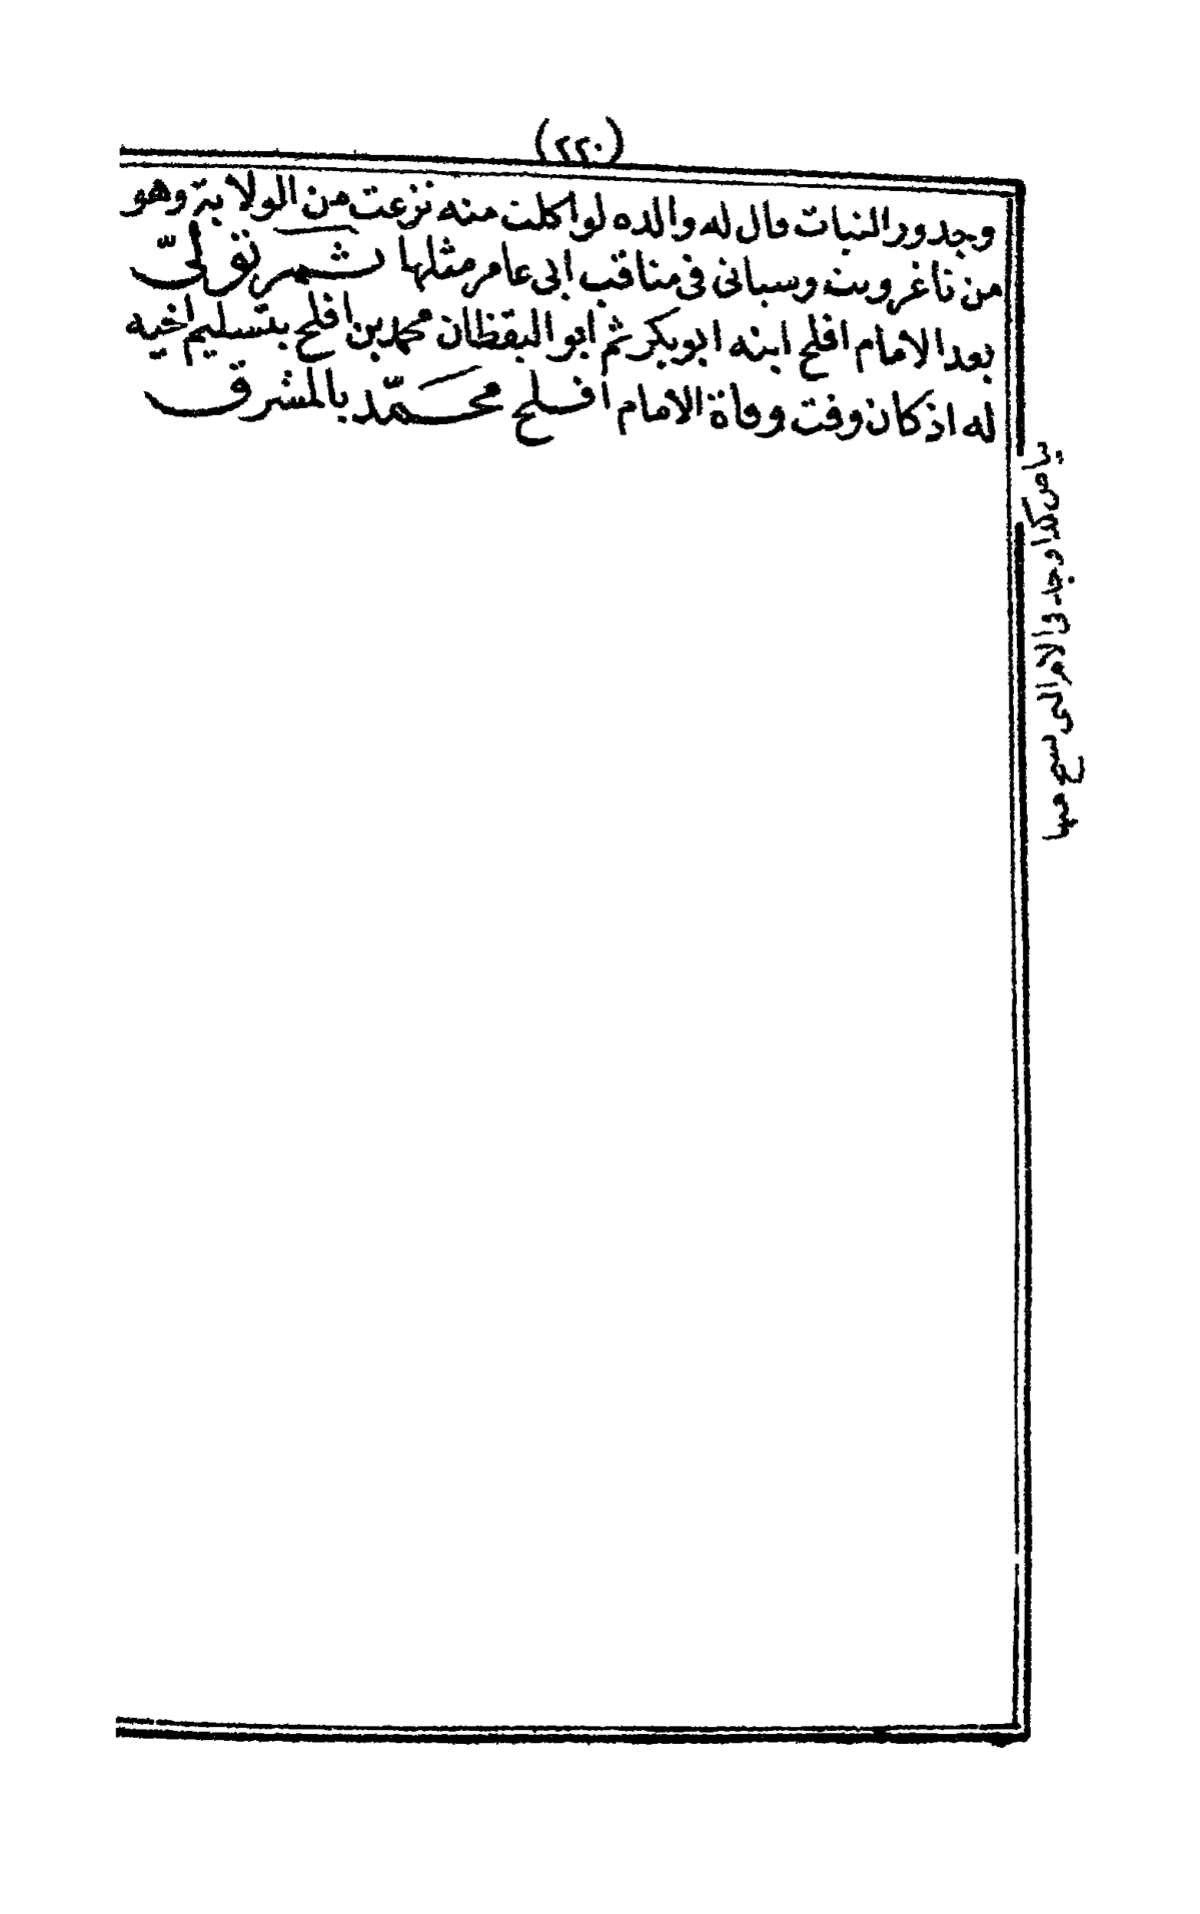 (٢٢٠)
وجدور النبات قال له والده لو اكلت منه نزعت من الولاية وهو
من تاغرويت وسياتى فى مناقب ابى عامر مثلها ثم تولّى
بعد الامام افلح ابنه ابو بكر ثم ابو اليقظان محمد بن افلح بتسليم اخيه
له اذ كان وقت وفاة الامام افلح محمّد بالمشرق
بياض كذا وجد فى الام التى نسخ منها